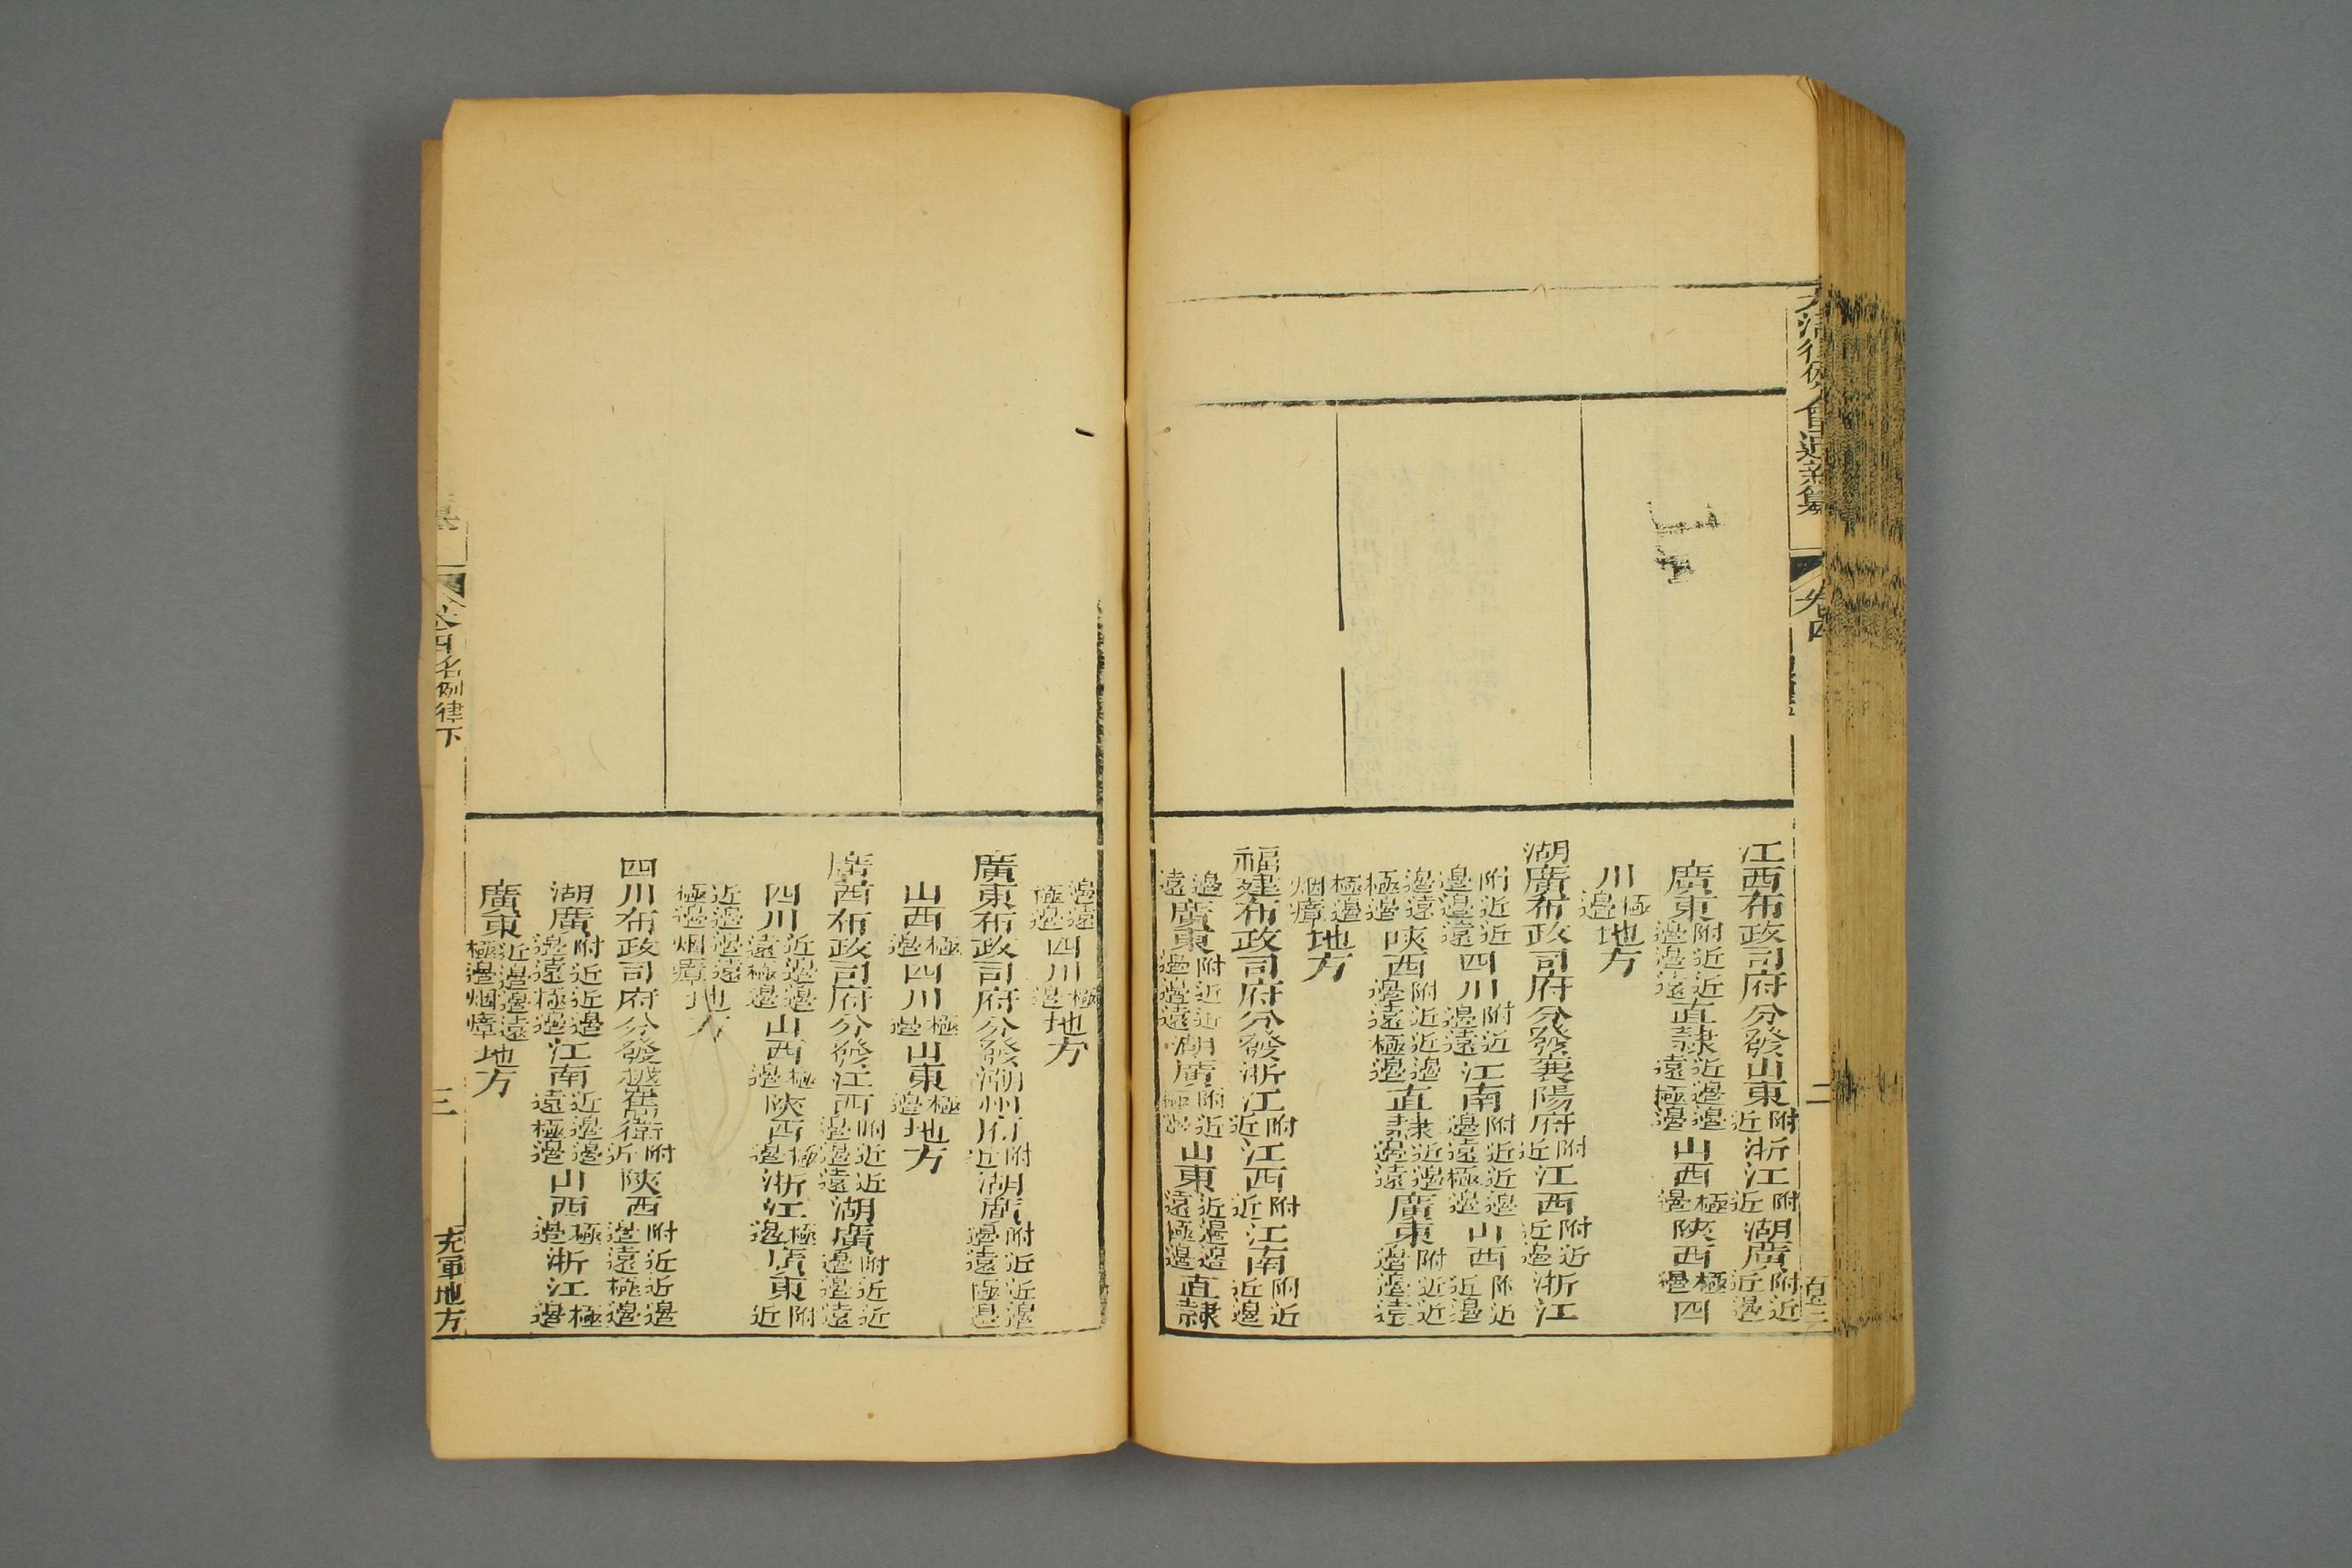 大清律例會通新纂 卷四 二
江西布政司府分發山東附近浙江附近湖廣附近近邊
廣東附近近邊邊遠直隸近邊邊遠極邊山西極邊陝西極邊四
川極邊地方
湖廣布政司府分發襄陽府附近江西附近近邊浙江
附近近邊邊遠四川附近邊遠江南附近近邊邊遠極邊山西附近近邊
邊遠極邊陝西附近近邊邊遠極邊直隸近邊邊遠廣東附近近邊邊遠
極邊烟瘴地方
福建布政司府分發浙江附近江西附近江南附近近邊
邊遠廣東附近近邊邊遠湖廣附近極邊山東近邊邊遠極邊直隸
邊遠極邊四川極邊地方
廣東布政司府分發潮州府附近湖廣附近近邊邊遠極邊
山西極邊四川極邊山東極邊地方
廣西布政司府分發江西附近近邊邊遠湖廣附近近邊邊遠
四川近邊邊遠極邊山西極邊陝西極邊浙江極邊廣東附近
近邊邊遠極邊烟瘴地方
四川布政司府分發越雟衛附近陝西附近近邊邊遠極邊
湖廣附近近邊邊遠極邊江南近邊邊遠極邊山西極邊浙江極邊
廣東近邊邊遠極邊烟瘴地方
卷四名例律下 三 充軍地方